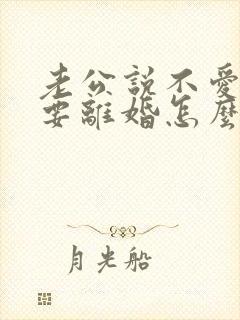 老公說不愛
要離婚怎麼
月光船